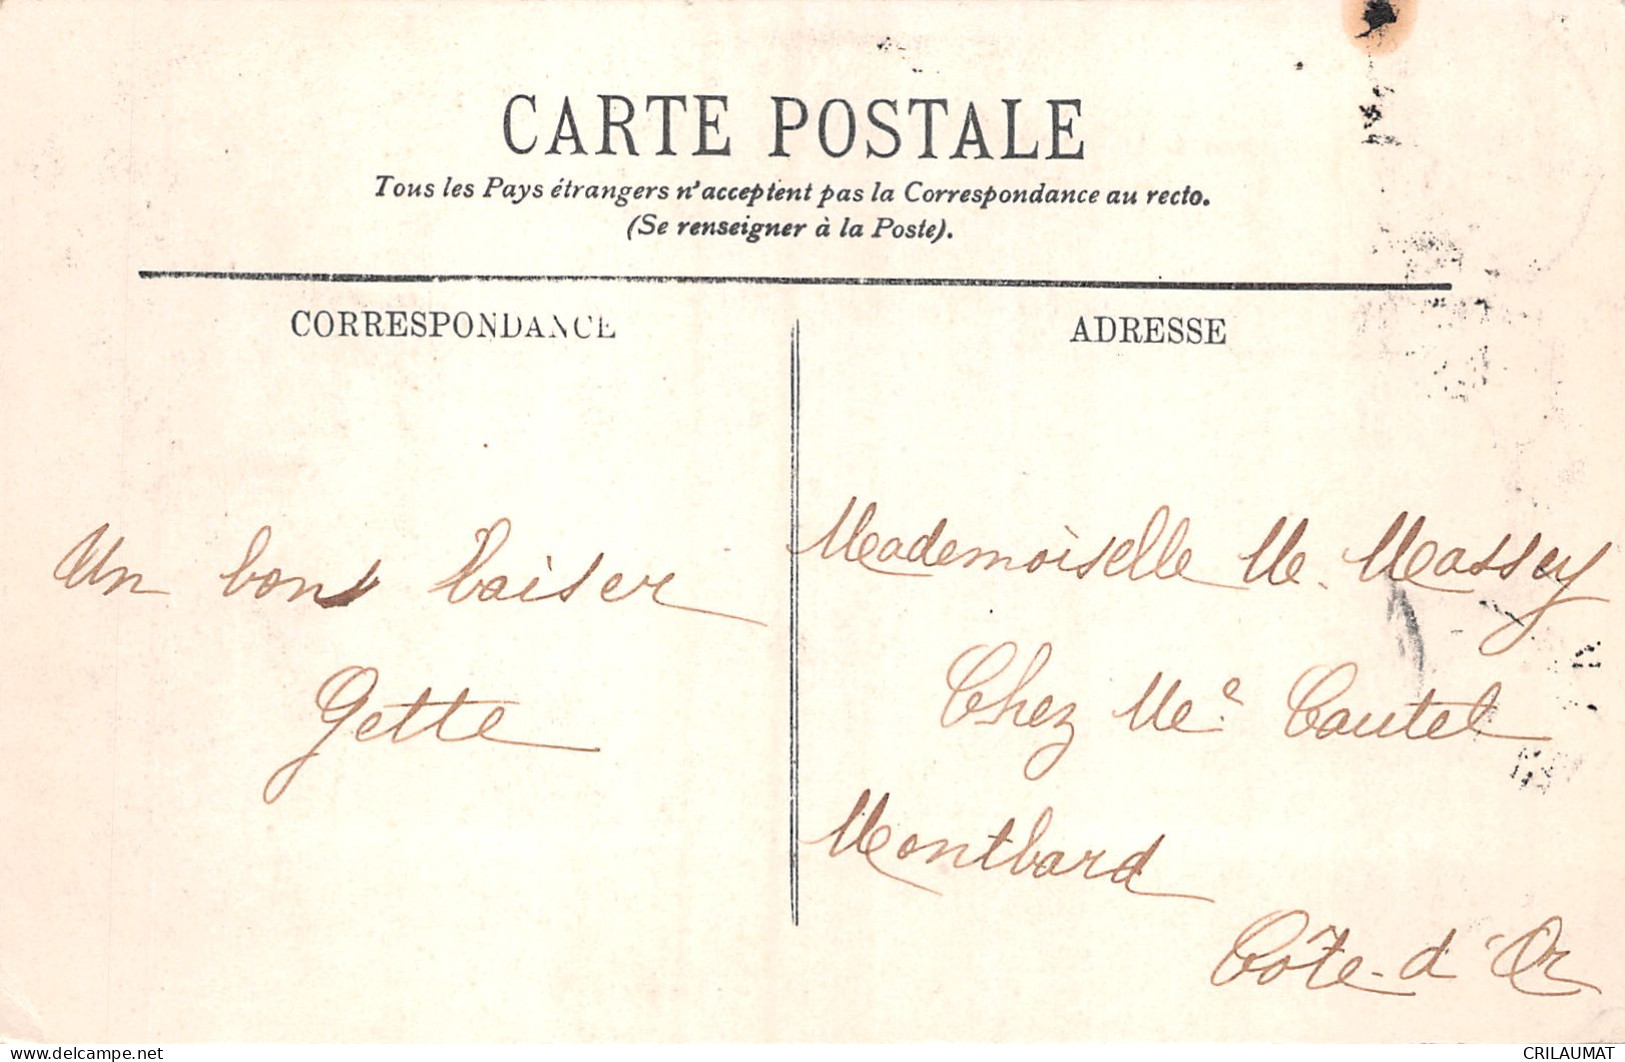 CARTE POSTALE
Tous les Pays étrangers n'acceptent pas la Correspondance au recto.
(Se renseigner à la Poste).
CORRESPONDANCE
ADRESSE
Un bons baiser
Gette
Mademoiselle M. Massey
Chez Me. Cautel
Montbard
Côte-d'Or
www.delcampe.net
CRILAUMAT